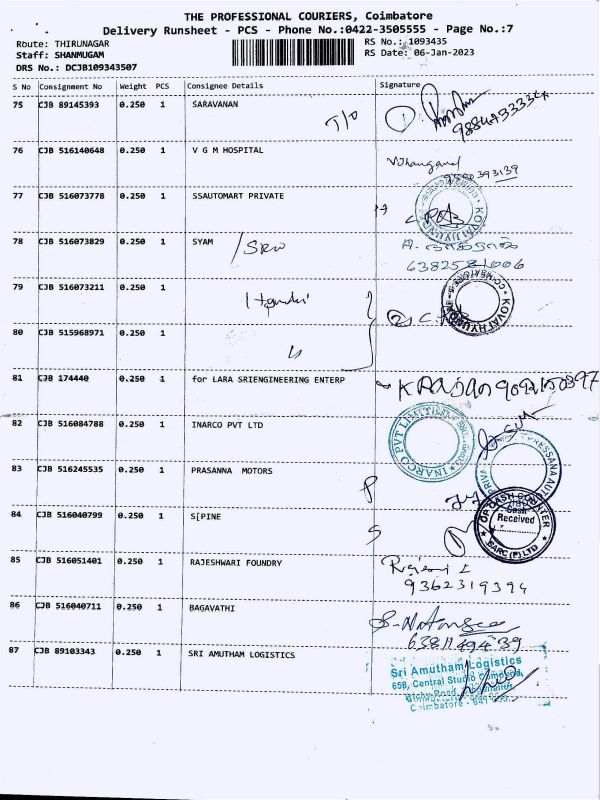 THE PROFESSIONAL COURIERS, Coimbatore
Delivery Runsheet - PCS - Phone No.:0422-3505555 - Page No.:7
Route: THIRUNAGAR RS No.: 1093435
Staff: SHANMUGAM RS Date: 06-Jan-2023
DRS No.: DCJB109343507
S No Consignment No Weight PCS Consignee Details Signature
75 CJB 89145393 0.250 1 SARAVANAN T/o
76 CJB 516140648 0.250 1 V G M HOSPITAL
77 CJB 516073778 0.250 1 SSAUTOMART PRIVATE
78 CJB 516073829 0.250 1 SYAM
6382581006
79 CJB 516073211 0.250 1
80 CJB 515968971 0.250 1
81 CJB 174440 0.250 1 for LARA SRIENGINEERING ENTERP
82 CJB 516084788 0.250 1 INARCO PVT LTD
INARCO PVT LIMITED
83 CJB 516245535 0.250 1 PRASANNA MOTORS
84 CJB 516040799 0.250 1 S[PINE
OP CASH COUNTER
Cash
Received
SARC (P) LTD
85 CJB 516051401 0.250 1 RAJESHWARI FOUNDRY
9362319394
86 CJB 516040711 0.250 1 BAGAVATHI
87 CJB 89103343 0.250 1 SRI AMUTHAM LOGISTICS
Sri Amutham Logistics
65B, Central Studio Compound,
Coimbatore